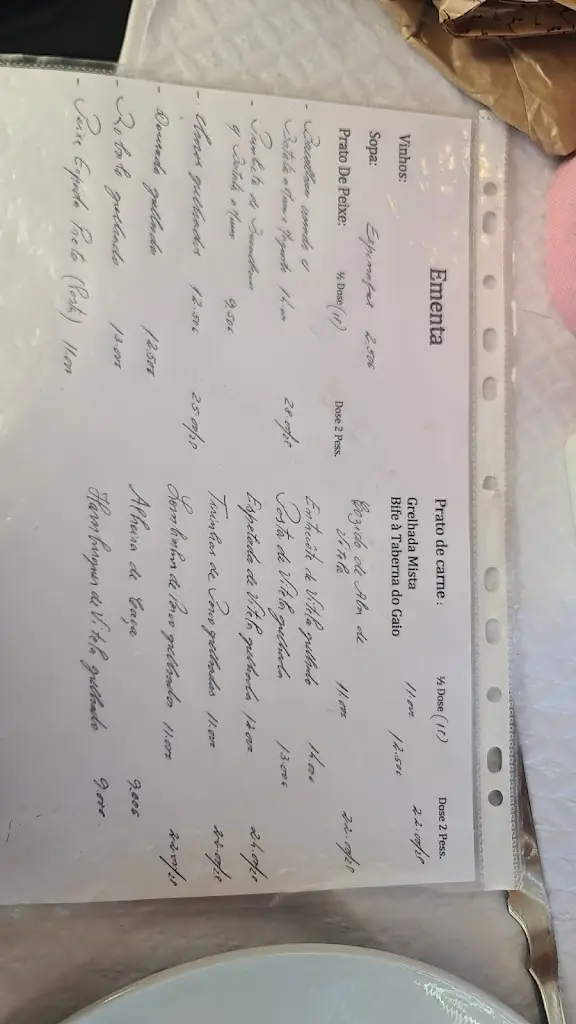 Ementa
Vinhos:
Sopa: Espinafres 2.50€
Prato De Peixe: ½ Dose (1P) Dose 2 Pess.
- Bacalhau
Batata a Murro 14.00 28.00
-
c/ Batata a Murro 9,50€
- grelhados 12.50€ 25.00
- Dourada grelhada 12.50€
- Robalo grelhado 13.00€
- Peixe Espada Preto 11.00
Prato de carne: ½ Dose (1P) Dose 2 Pess.
Grelhada Mista 11.00€ 22.00
Bife à Taberna do Gaio 12.50€
Cozido de Aba de
Vitela 11.00€ 22.00
Entrecôte de Vitela grelhado 14.00€
Posta de Vitela grelhada 13.00€
Espetada de Vitela grelhada 12.00€ 24.00
de Porco grelhadas 11.00€ 22.00
Lombinhos de Porco grelhados 11.00€ 22.00
Alheira de Caça 9.00€
Hamburguer de Vitela grelhado 9,00€